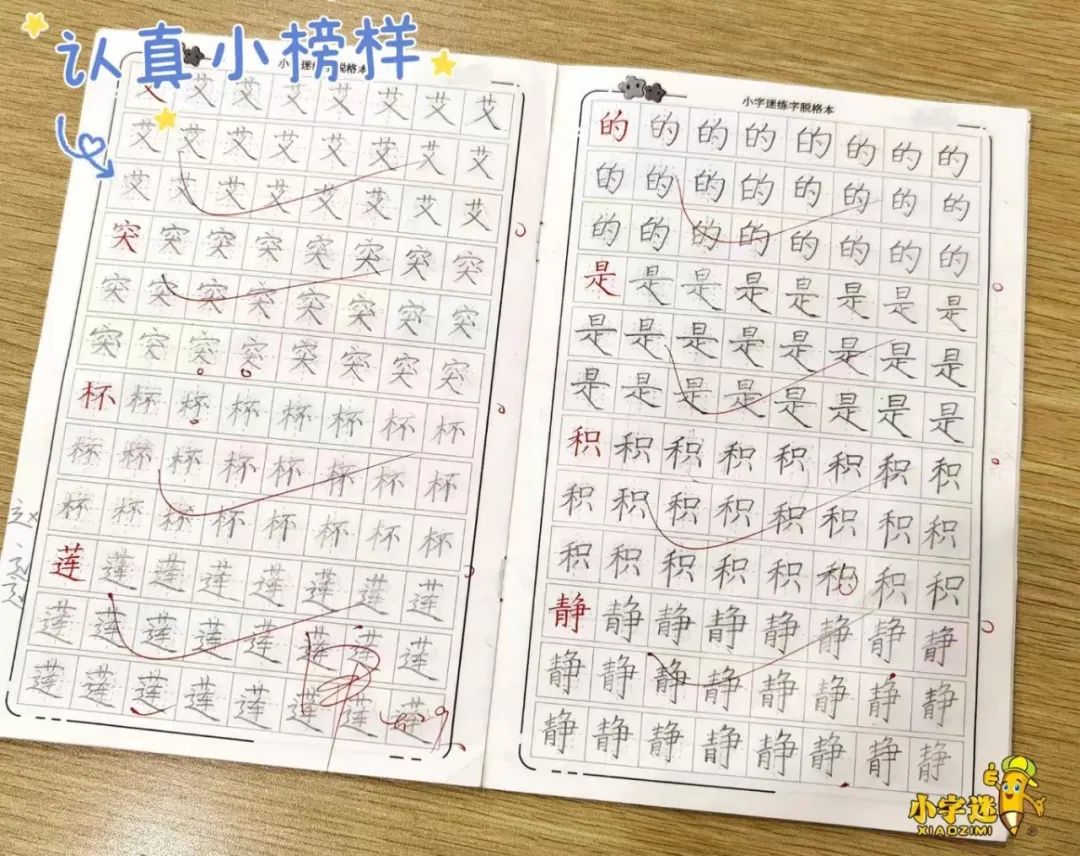 认真小榜样
小字迷练字脱格本
艾艾艾艾艾艾艾艾
艾艾艾艾艾艾艾艾
艾艾艾艾艾艾艾艾
突突突突突突突突
突突突突突突突突
突突突突突突突突
杯杯杯杯杯杯杯杯
杯杯杯杯杯杯杯杯
杯杯杯杯杯杯杯杯
莲莲莲莲莲莲莲莲
莲莲莲莲莲莲莲莲
莲莲莲莲莲莲莲莲
小字迷练字脱格本
的的的的的的的的
的的的的的的的的
的的的的的的的的
是是是是是是是是
是是是是是是是是
是是是是是是是是
积积积积积积积积
积积积积积积积积
积积积积积积积积
静静静静静静静静
静静静静静静静静
静静静静静静静静
小字迷
XIAOZIMI